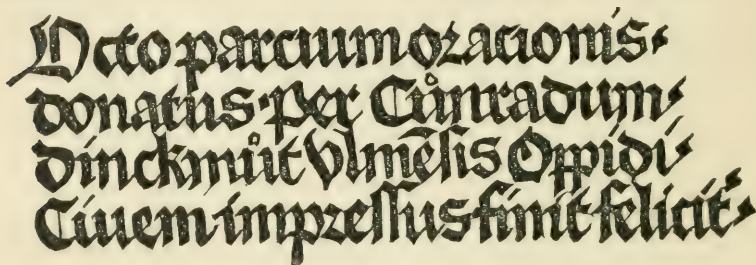 Octo parcium oracionis·
donatus·per Cůnradum·
dinckmůt Vlmēſis Oppidi·
Ciuem impreſſus finit felicit᷑·